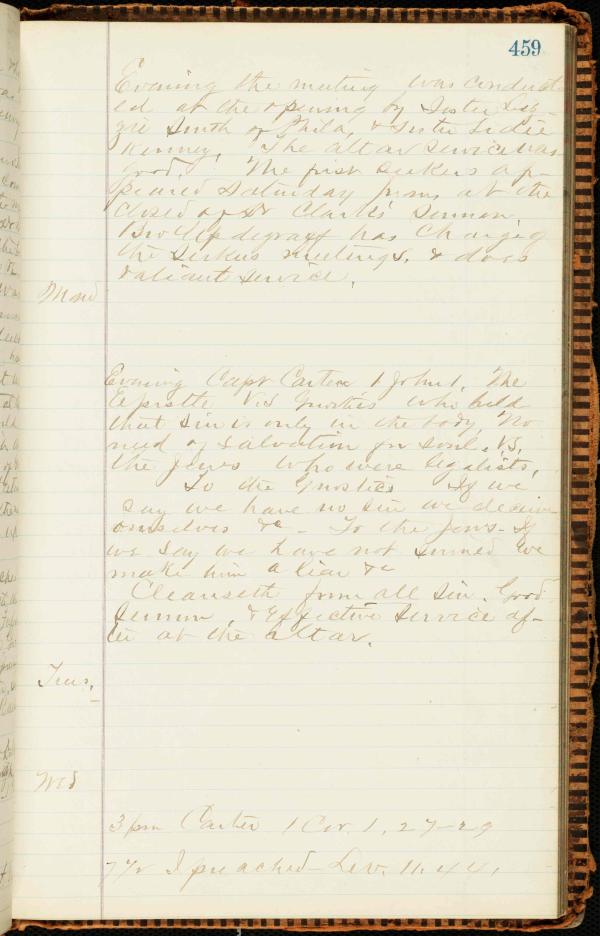 459
Evening the meeting was conduct
ed at the opening by Sister Liz-
zie Smith of Phila, & Sister Sadie
Kenney, The altar service was
good. The first seekers ap-
peared Saturday from at the
closed of Dr Clark's sermon.
Bro Updegraff has charge of
the Seekers meetings, & does
valiant service.
Mond
Evening Capt Carter 1 John 1, The
Epistle Vs Gnostics who held
that sin is only in the body, No
need of salvation for soul. VS,
the Jews who were legalists,
To the Gnostics If we
say we have no sin we deceive
ourselves &c - To the Jews - If
we say we have not sinned we
make him a liar &c
Cleanseth from all sin. Good
Sermon, & effective service af-
ter at the altar.
Tues,
Wed
3 pm Carter 1 Cor. 1, 27-29
7½ I preached - Lev. 11. 44,